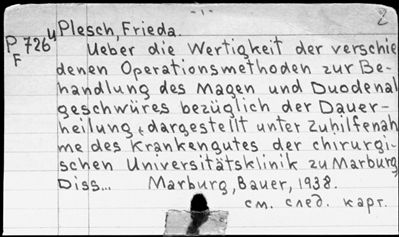 - 1 -
2
Plesch, Frieda.
P 726 u
F
Ueber die Wertigkeit der verschie
denen Operationsmethoden zur Be-
handlung des Magen und Duodenal
geschwüres bezüglich der Dauer-
heilung, dargestellt unter Zuhilfenah
me des Krankengutes der chirurgi-
schen Universitätsklinik zu Marburg,
Diss... Marburg, Bauer, 1938.
см. след. карт.